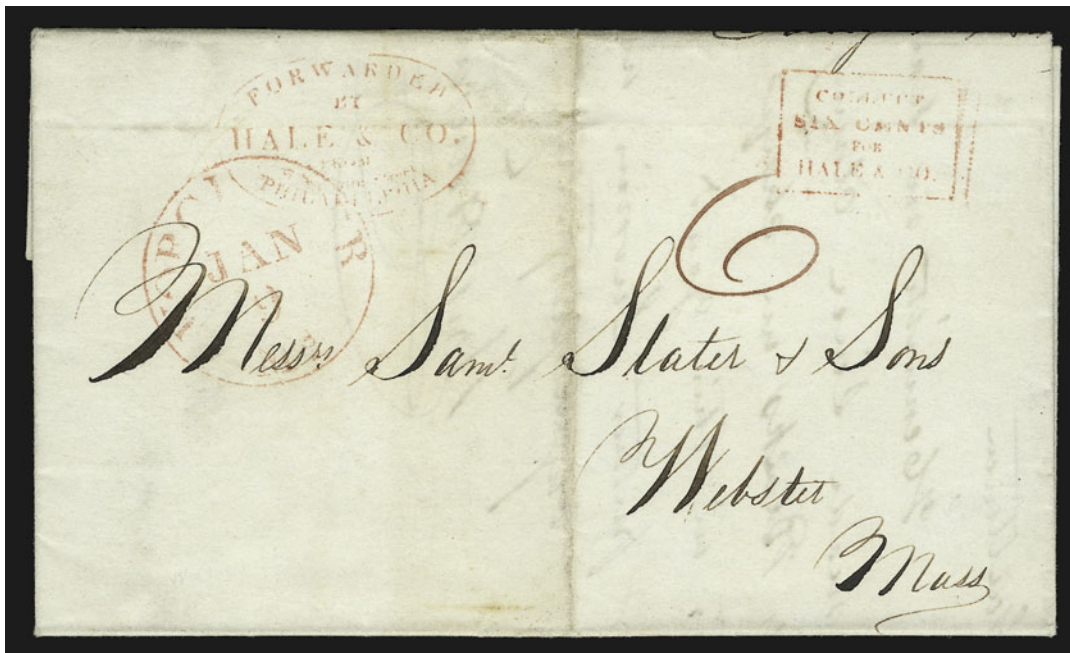 FORWARDED
BY
HALE & CO.
FROM
PHILADELPHIA
COLLECT
SIX CENTS
FOR
HALE & CO.
6
JAN
Messrs Saml Slater & Sons
Webster
Mass